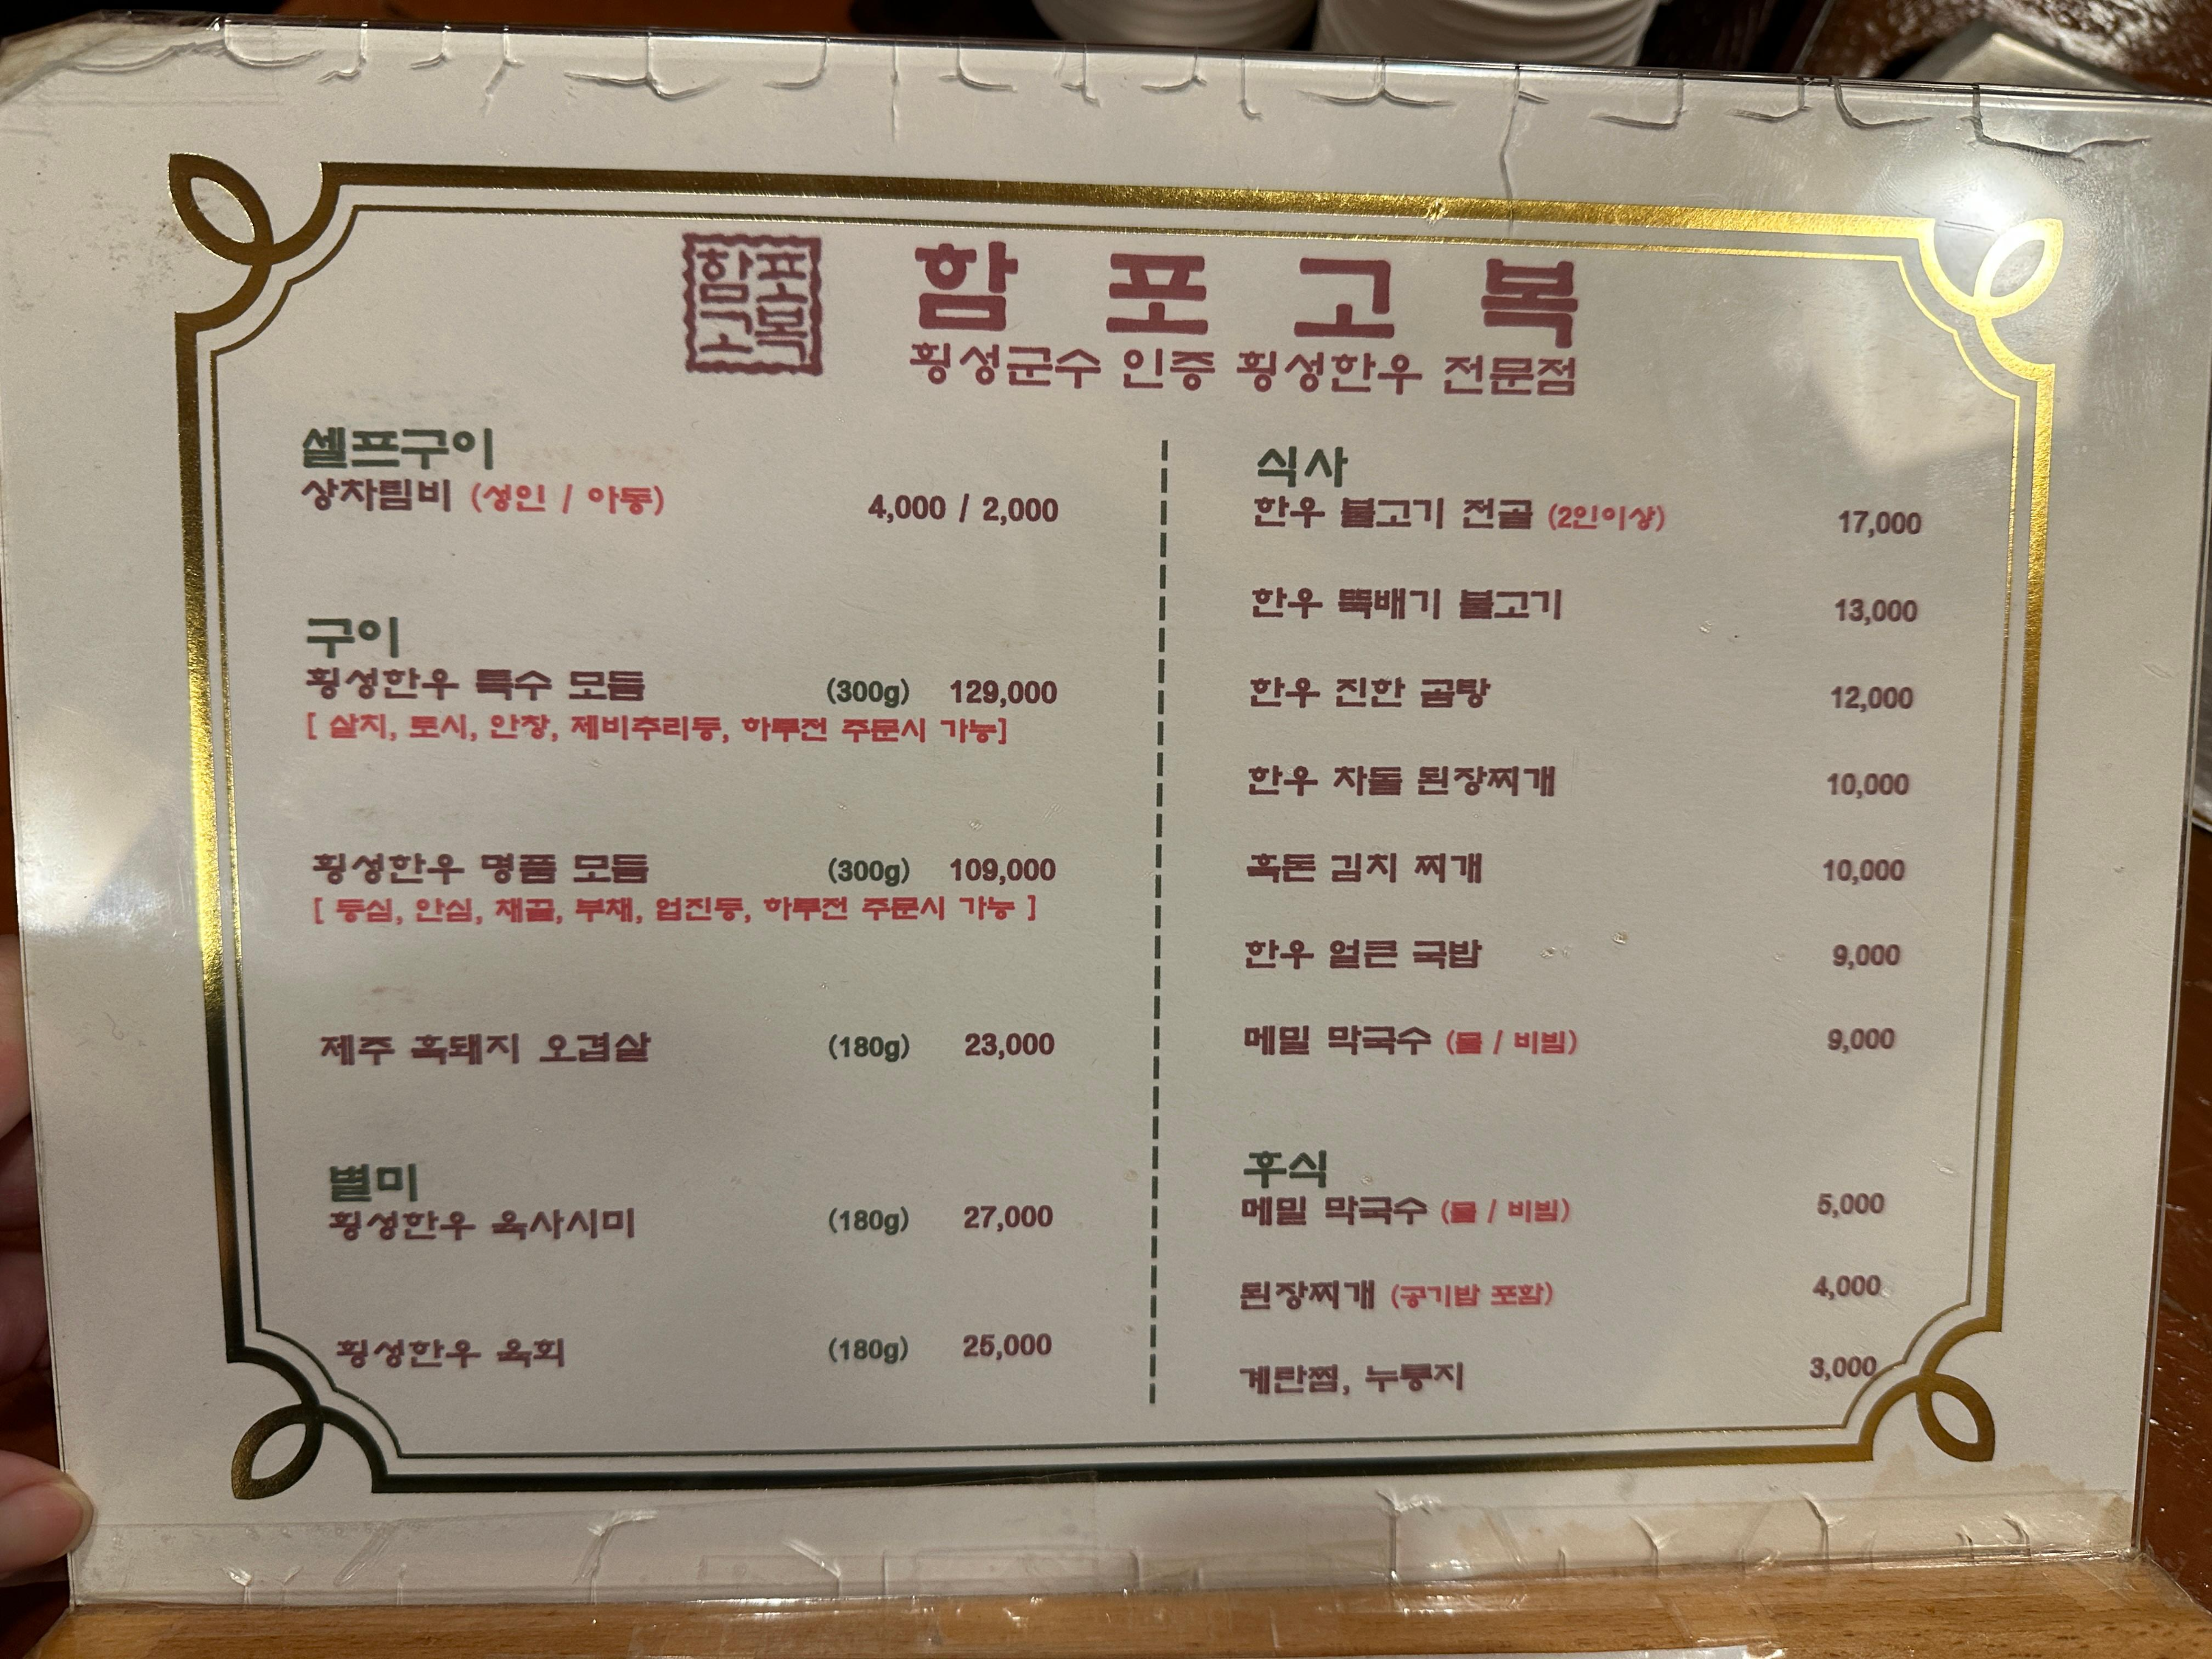 함포
고복
함 포 고 복
횡성군수 인증 횡성한우 전문점
셀프구이
상차림비 (성인 / 아동) 4,000 / 2,000
구이
횡성한우 특수 모듬 (300g) 129,000
[ 살치, 토시, 안창, 제비추리등, 하루전 주문시 가능]
횡성한우 명품 모듬 (300g) 109,000
[ 등심, 안심, 채끝, 부채, 업진등, 하루전 주문시 가능 ]
제주 흑돼지 오겹살 (180g) 23,000
별미
횡성한우 육사시미 (180g) 27,000
횡성한우 육회 (180g) 25,000
식사
한우 불고기 전골 (2인이상) 17,000
한우 뚝배기 불고기 13,000
한우 진한 곰탕 12,000
한우 차돌 된장찌개 10,000
흑돈 김치 찌개 10,000
한우 얼큰 국밥 9,000
메밀 막국수 (물 / 비빔) 9,000
후식
메밀 막국수 (물 / 비빔) 5,000
된장찌개 (공기밥 포함) 4,000
계란찜, 누룽지 3,000